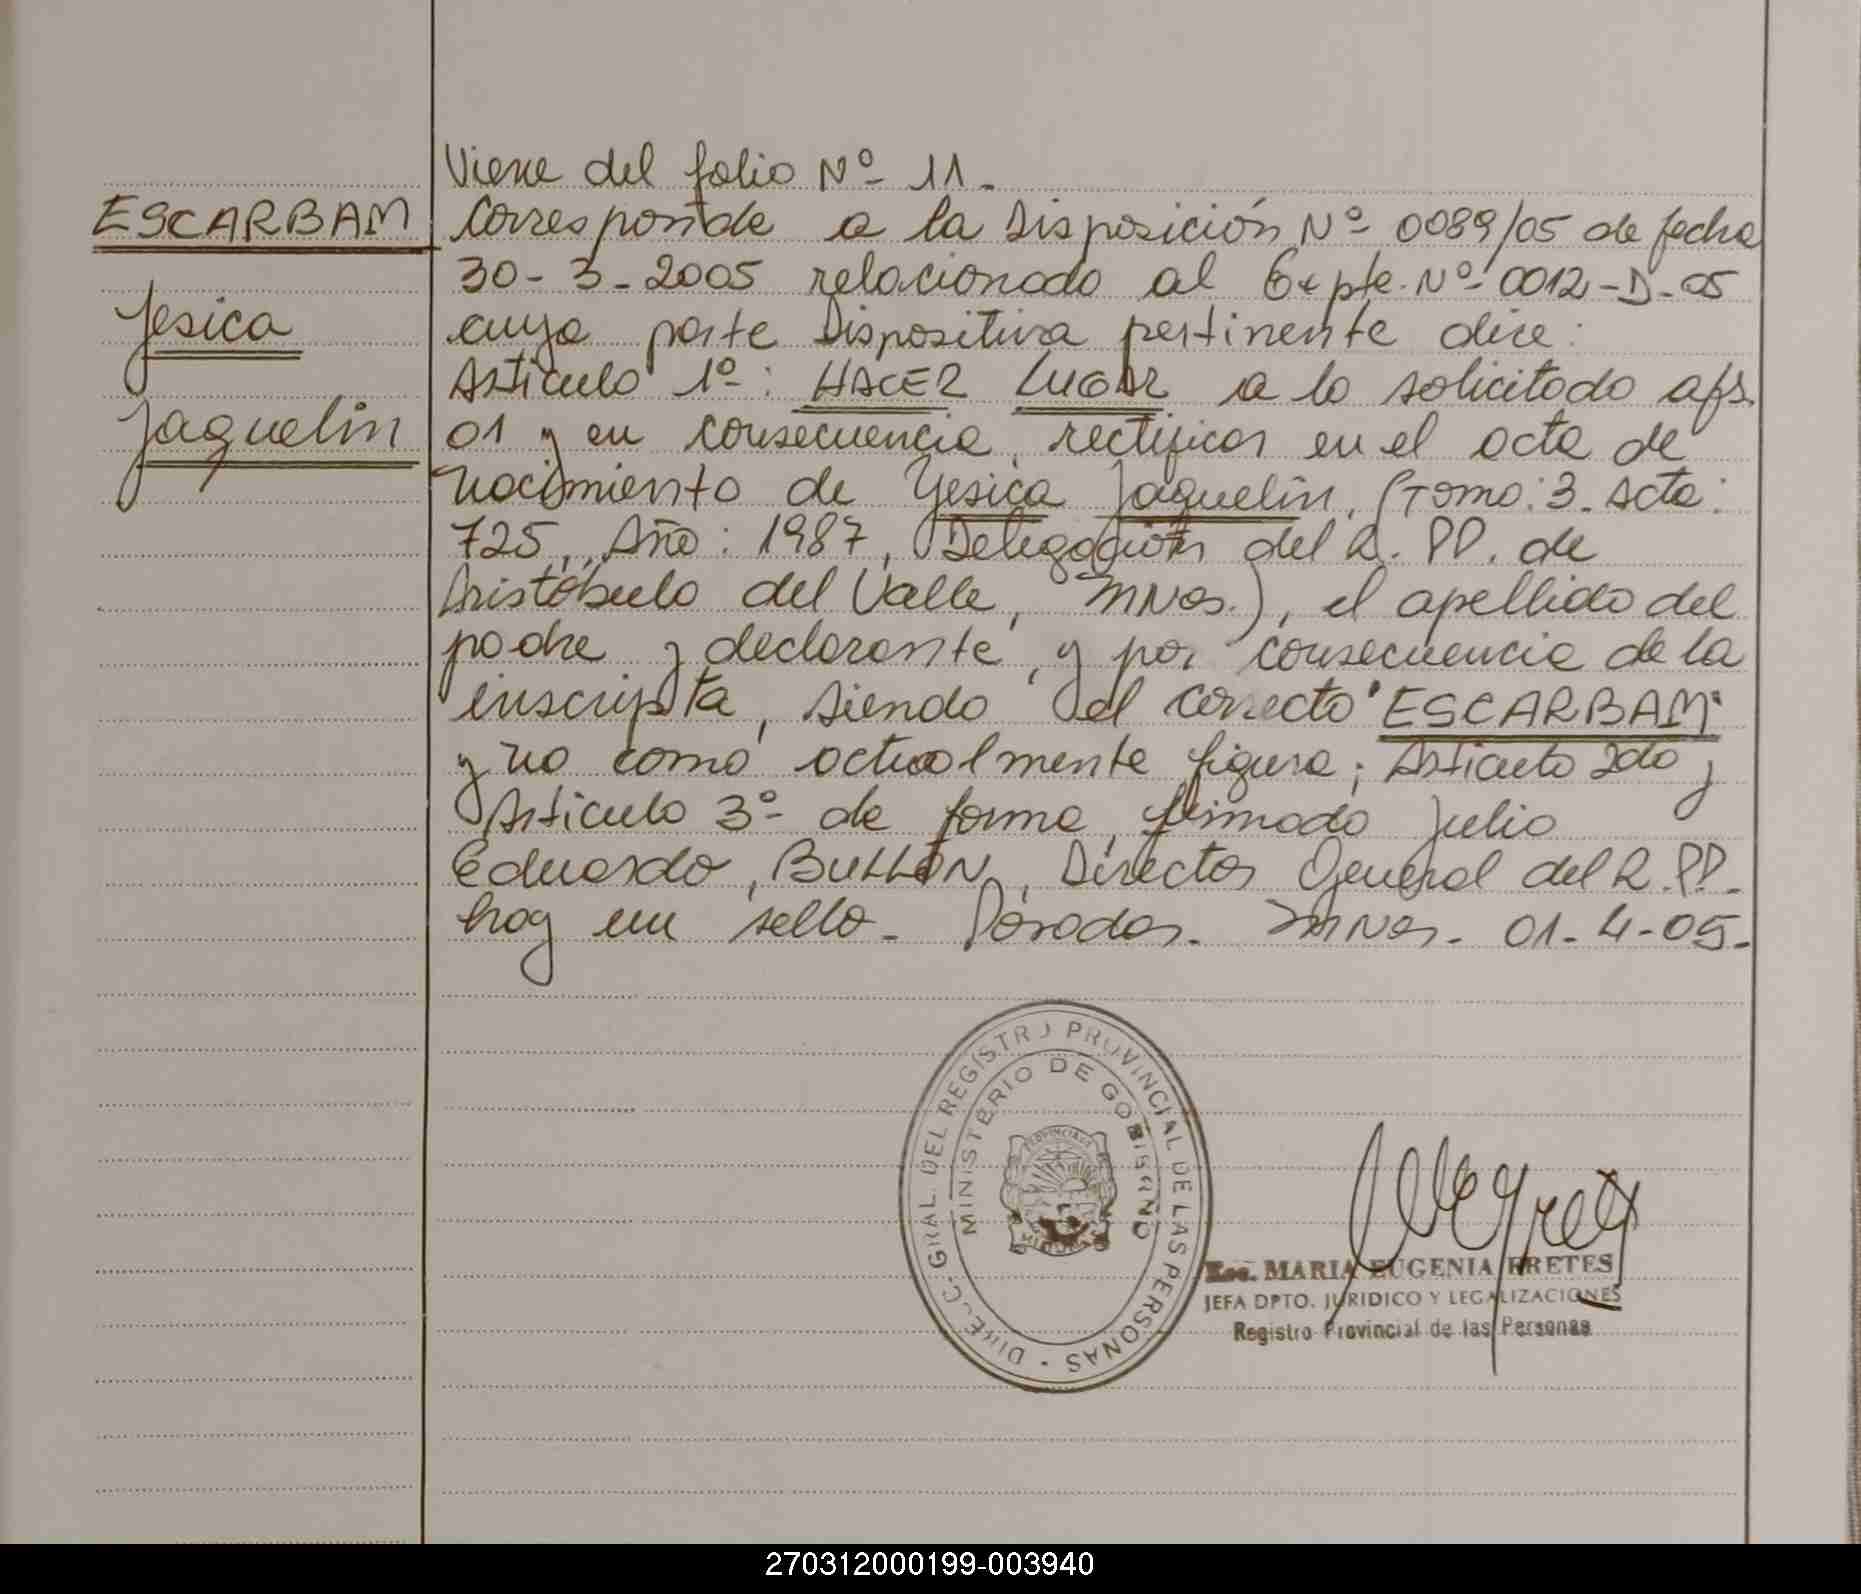 ESCARBAM
Jesica
Jaquelin
Viene del folio Nº 11.
Corresponde a la Disposición Nº 0089/05 de fecha
30-3-2005 relacionado al Expte. Nº 0012-D-05
cuya parte Dispositiva pertinente dice:
Artículo 1º: HACER LUGAR a lo solicitado a fs.
01 y en consecuencia, rectificar en el acta de
nacimiento de Yesica Jaquelin, (Tomo: 3. Acta:
725, Año: 1987, Delegación del R. PP. de
Aristóbulo del Valle, Mnes.), el apellido del
padre y declarante, y por consecuencia de la
inscripta, siendo el correcto "ESCARBAM"
y no como actualmente figura; Artículo 2do y
Artículo 3º de forma, firmado Julio
Eduardo, BULLON, Director General del R. PP.
hay un sello. Posadas. Mnes. 01-4-05.
DIREC. GRAL. DEL REGISTRO PROVINCIAL DE LAS PERSONAS
MINISTERIO DE GOBIERNO
PROVINCIA DE
MISIONES
Esc. MARIA EUGENIA FRETES
JEFA DPTO. JURIDICO Y LEGALIZACIONES
Registro Provincial de las Personas
270312000199-003940